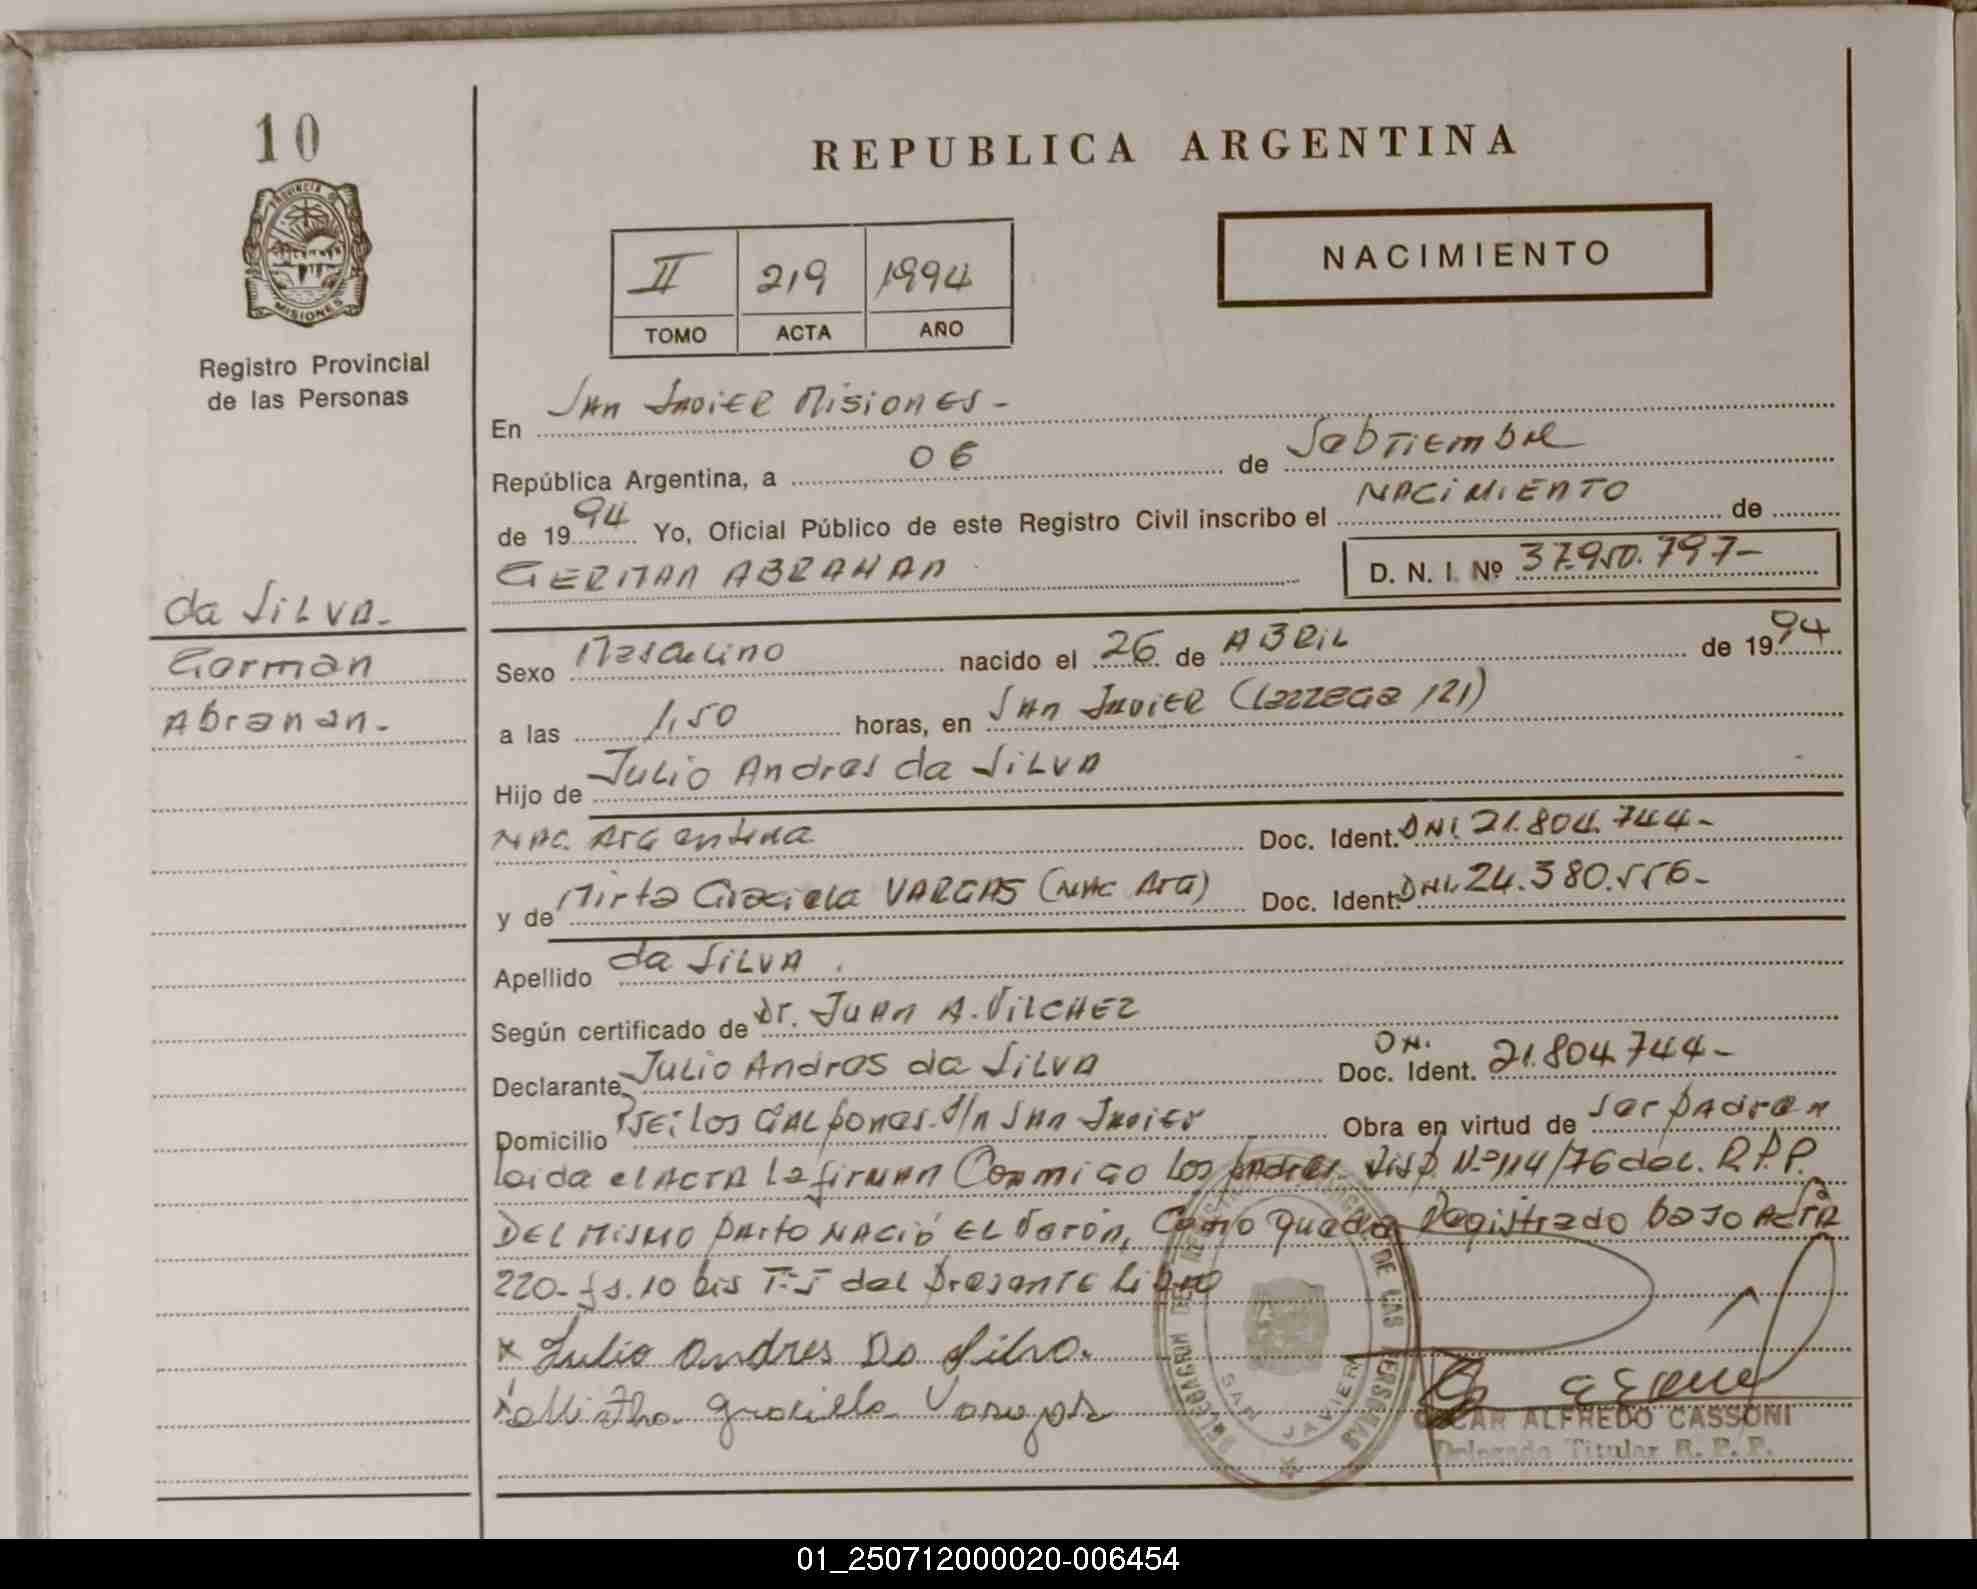 10
PROVINCIA DE
MISIONES
Registro Provincial
de las Personas
da SILVA.
German
Abrahan.
REPUBLICA ARGENTINA
II 219 1994
TOMO ACTA AÑO
NACIMIENTO
En San Javier Misiones -
República Argentina, a 06 de Sebtiembre
de 1994 Yo, Oficial Público de este Registro Civil inscribo el NACIMIENTO de
GERMAN ABRAHAN D. N. I. Nº 37.950.797-
Sexo Masculino nacido el 26 de ABRIL de 1994
a las 1,50 horas, en San Javier (Larrega 121)
Hijo de Julio Andres da SILVA
NAC. Argentina Doc. Ident. DNI. 21.804.744-
y de Mirta Graciela VARGAS (NAC Arg) Doc. Ident. DNI. 24.380.556-
Apellido da SILVA.
Según certificado de Dr. JUAN A. VILCHEZ
Declarante Julio Andres da SILVA Doc. Ident. DNI. 21.804.744-
Domicilio Pje: Los Galpones. S/n San Javier Obra en virtud de ser padre
Leida el ACTA La firman Conmigo Los padres Disp. Nº 114/76 del. R.P.P.
DEL MISMO parto NACió EL Varón, Como queda Registrado bajo ACTA
220- fs. 10 bis T=I del presente Libro
x Julio Andres Da Silva.
x Mirtha Graciela Vargas
DELEGACION DEL REGISTRO DE LAS PERSONAS
SAN JAVIER
OSCAR ALFREDO CASSONI
Delegado Titular R. P. P.
01_250712000020-006454